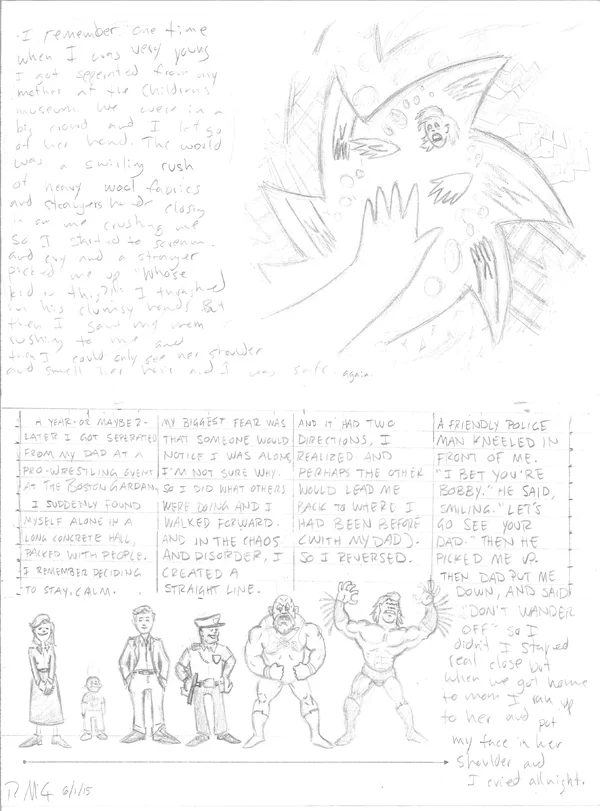 I remember one time
when I was very young
I got seperated from my
mother at the childrens
museum. We were in a
big crowd and I let go
of her hand. The world
was a swirling rush
of heavy wool fabrics
and strangers closing
in on me crushing me
So I started to scream.
and cry and a stranger
picked me up "Whose
kid is this?!" I thrashed
in his clumsy hands But
then I saw my mom
rushing to me and
then I could only see her shoulder
and smell her hair and I was safe again.
A YEAR-OR MAYBE 2-
LATER I GOT SEPERATED
FROM MY DAD AT A
PRO-WRESTLING EVENT
AT THE BOSTON GARDAN,
I SUDDENLY FOUND
MYSELF ALONE IN A
LONG CONCRETE HALL,
PACKED WITH PEOPLE.
I REMEMBER DECIDING
TO STAY CALM.
MY BIGGEST FEAR WAS
THAT SOMEONE WOULD
NOTICE I WAS ALONE
I'M NOT SURE WHY.
SO I DID WHAT OTHERS
WERE DOING AND I
WALKED FORWARD.
AND IN THE CHAOS
AND DISORDER, I
CREATED A
STRAIGHT LINE.
AND IT HAD TWO
DIRECTIONS, I
REALIZED AND
PERHAPS THE OTHER
WOULD LEAD ME
BACK TO WHERE I
HAD BEEN BEFORE
(WITH MY DAD).
SO I REVERSED.
A FRIENDLY POLICE
MAN KNEELED IN
FRONT OF ME.
"I BET YOU'RE
BOBBY." HE SAID,
SMILING. "LET'S
GO SEE YOUR
DAD." THEN HE
PICKED ME UP.
THEN DAD PUT ME
DOWN, AND SAID
"DON'T WANDER
OFF" SO I
didn't I stayed
real close but
when we got home
to mom I ran up
to her and put
my face in her
shoulder and
I cried all night.
RMG 6/1/15